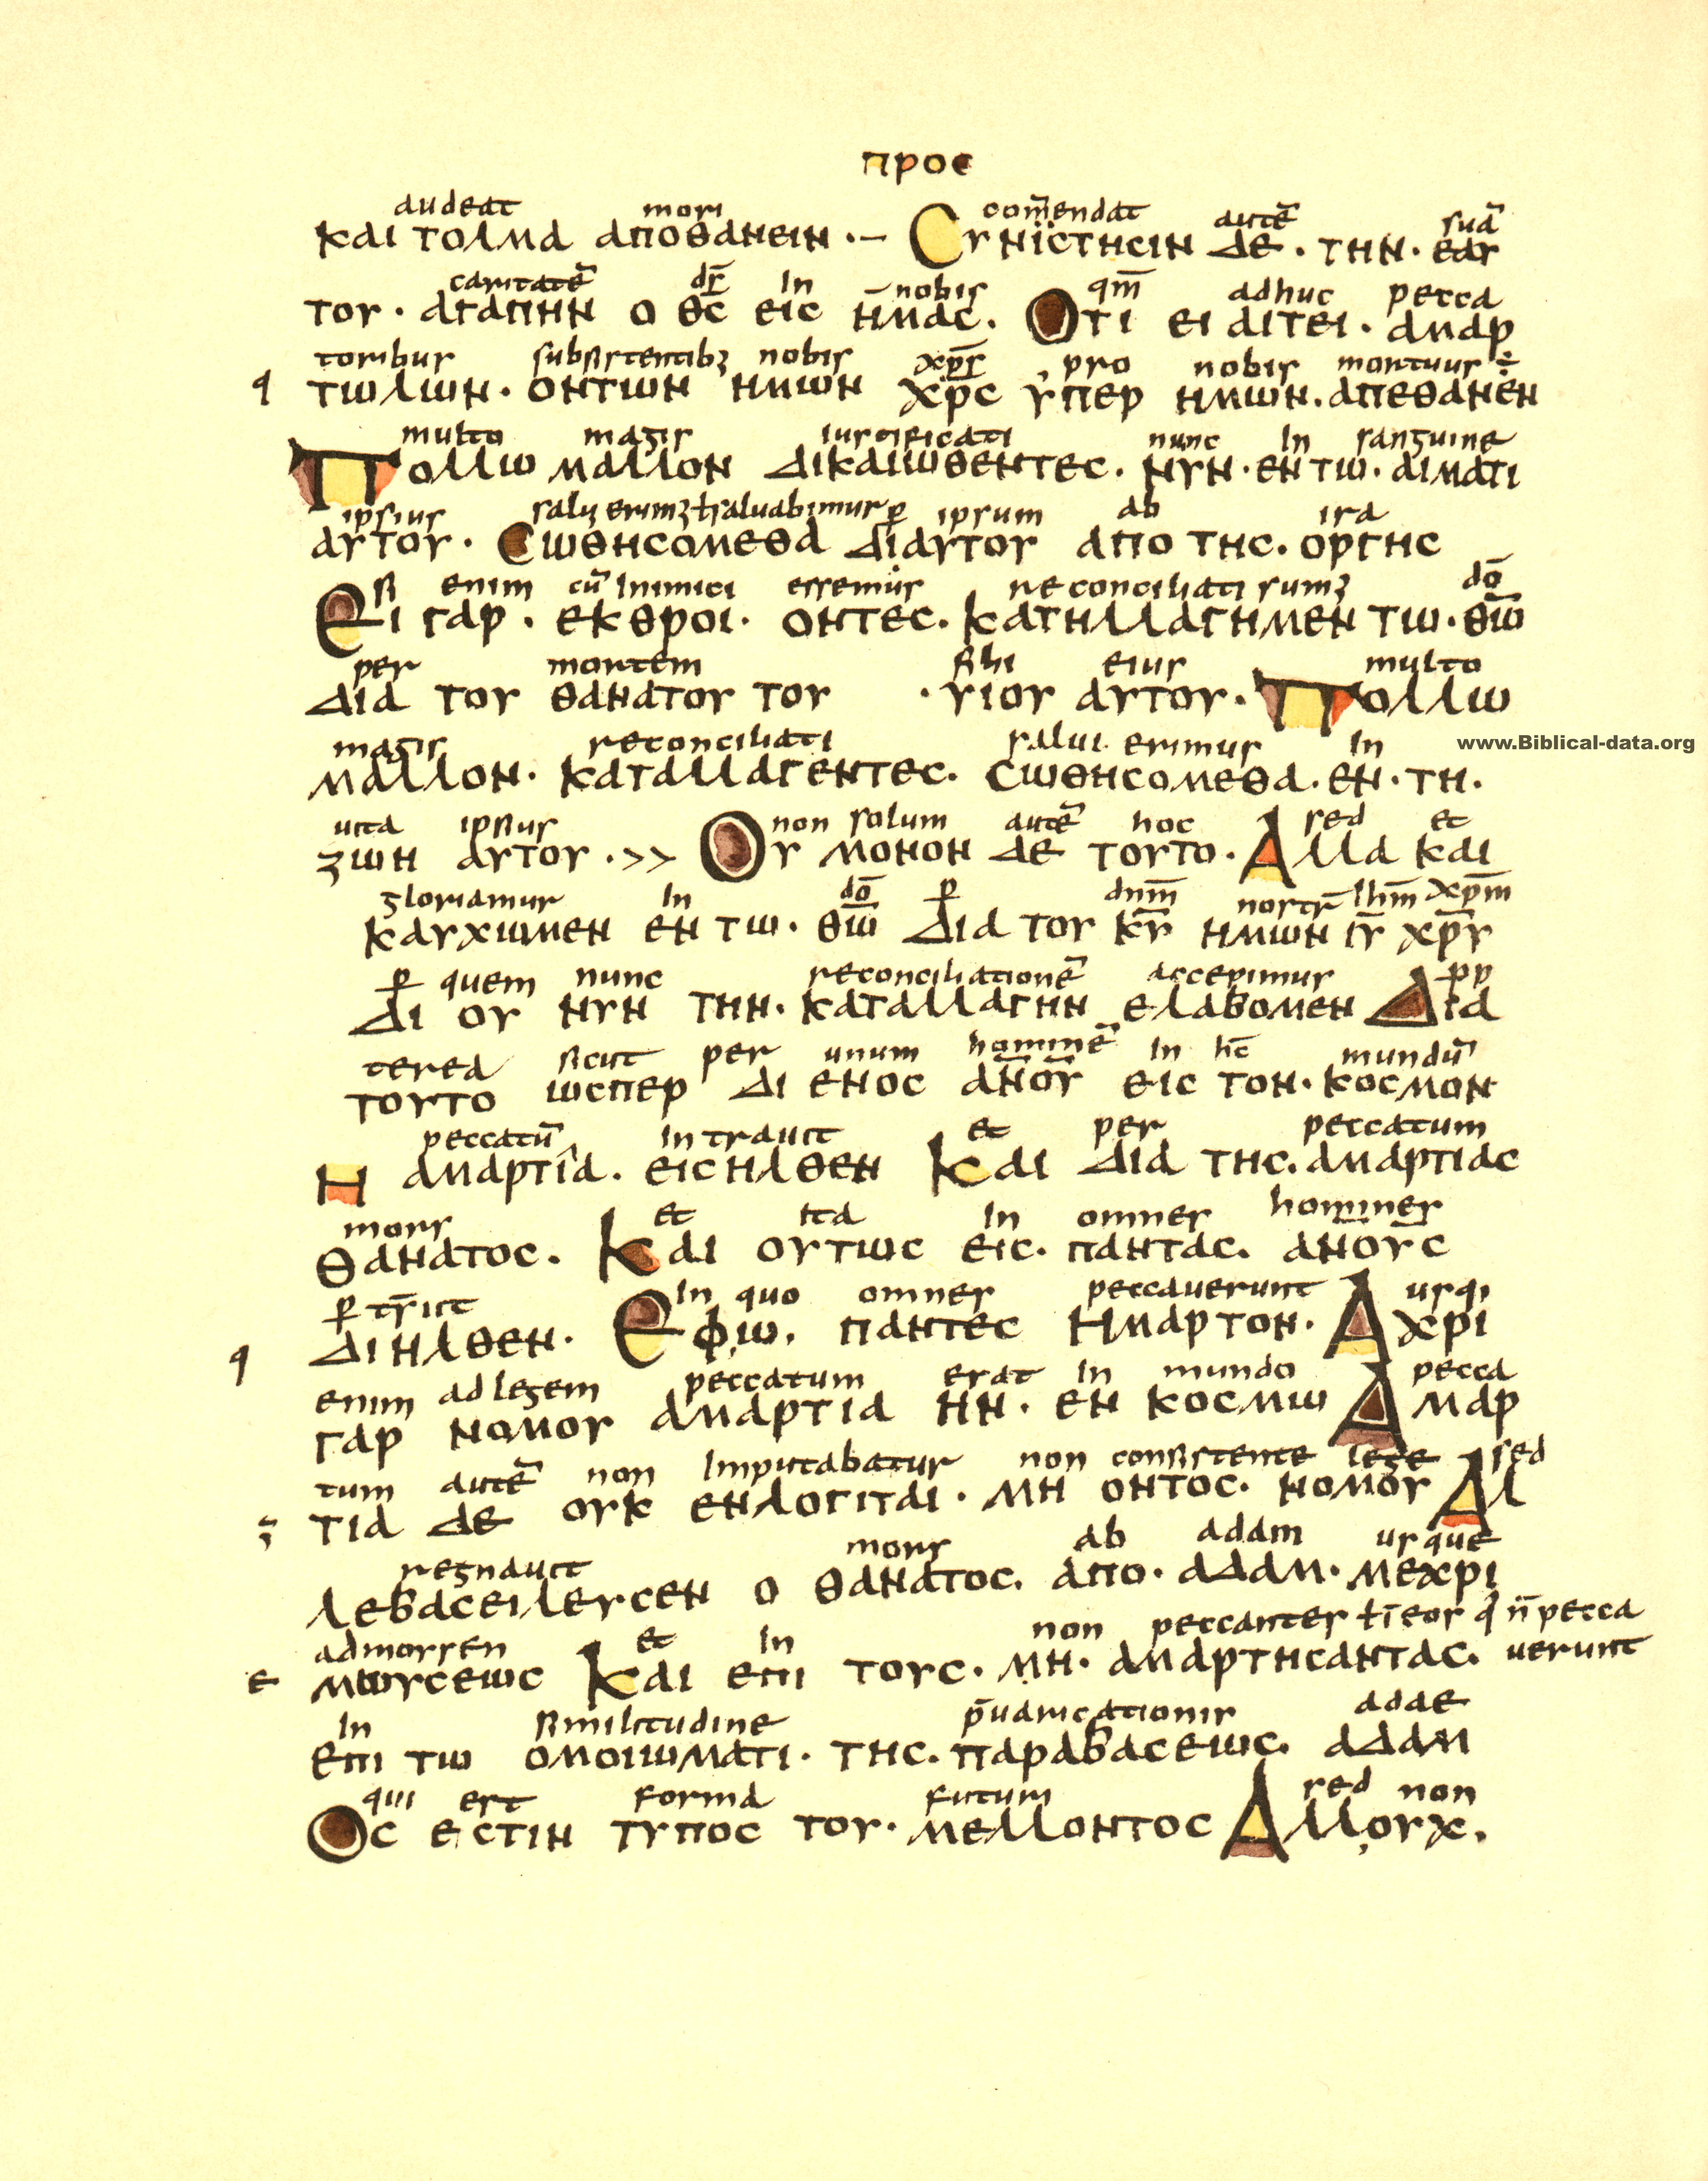 προσ
audeat mori com̄endat autē suā
και τολμα αποθανειν ·– Cυνϊστησιν δε · την · εαυ
caritatē dr̄ in nobis qm̄ adhuc pecca
του · αγαπην ο θ̅c̅ εις ημας. Οτι ει αιτει · αμαρ
toribus subsistentibꝫ nobis xp̄s pro nobis mortuus ÷
q τωλων · οντων ημων χ̅ρ̅c̅ υπερ ημων. απεθανεν
multo magis iustificati nunc in sanguine
Πολλω μαλλον δικαιωθεντες. νυν · εν τω · αιματι
ipsius saluerimꝫ ł saluabimus ꝑ ipsum ab ira
αυτου · Cωθησομεθα διαυτου απο της. οργης
si enim cū inimici essemus reconciliati sumꝫ dō
Ει γαρ · εκθροι · οντες. κατηλλαγημεν τω · θ̅ω̅
per mortem filii eius multo
δια του θανατου του · υιου αυτου · Πολλω
magis reconciliati salui erimus in
μαλλον · καταλλαγεντες. σωθησομεθα. εν · τη.
uita ipsius non solum autē hoc sed et
ζωη αυτου · >> Ου μονον δε τουτο · Αλλα και
gloriamur in dō ꝑ dnm̄ nostr̄ ihm̄ xpm̄
καυχωμεν εν τω · θ̅ω̅ Δια του κ̅υ̅ ημων ι̅υ̅ χ̅ρ̅υ̅
ꝑ quem nunc reconciliationē accepimus ꝓp
Δι ου νυν την · καταλλαγην ελαβομεν Δια
terea sicut per unum hominē in hc̄ mundū
τουτο ωσπερ δι ενος αν̅ου̅ εις τον · κοσμον
peccatū intrauit et per peccatum
η αμαρτια. εισηλθεν Και δια της. αμαρτιας
mors et ita in omnes homines
θανατος. Και ουτως εις · παντας. αν̅ου̅ς
ꝑ tr̄iit in quo omnes peccauerunt usqi
διηλθεν. Εφ ω. παντες ημαρτον. Αχρι
q
enim ad legem peccatum erat in mundo pecca
γαρ νομου αμαρτια ην · εν κοσμω Αμαρ
tum autē non imputabatur non consistente lege sed
ζ τια δε ουκ ενλογιται · μη οντος · νομου Αλ
regnauit mors ab adam usque
λεβασειλευσεν ο θανατος. απο · αδαμ · μεχρι
ad morsen et in non peccantes ł in eos q̄ n̄ pecca
ε μωυσεως Και επι τους. μη. αμαρτησαντας. uerunt
in similitudine p̄uaricationis adae
επι τω ομοιωματι · της. παραβασεως. αδαμ
qui est forma futuri sed non
Ος εστιν τυπος του · μελλοντος Αλλουχ.
www.Biblical-data.org